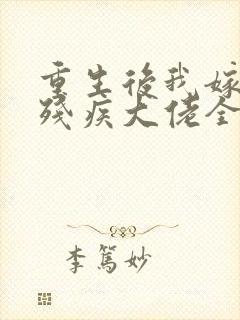 重生後我嫁
殘疾大佬全
李篤妙